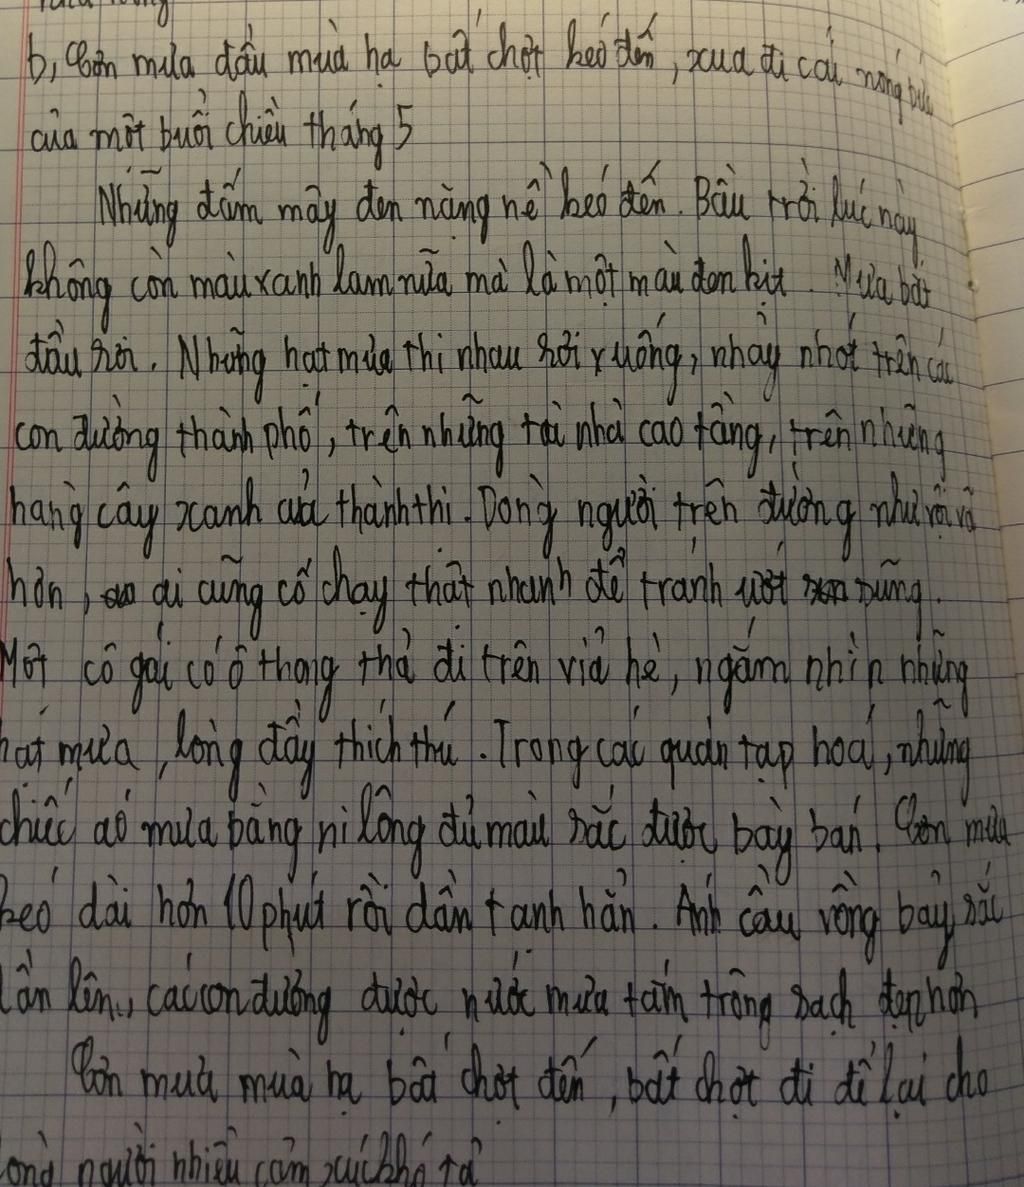 b, Cơn mưa đầu mùa hạ bất chợt kéo đến, xua đi cái nóng bức
của một buổi chiều tháng 5
Những đám mây đen nặng nề kéo đến. Bầu trời lúc này
không còn màu xanh lam nữa mà là một màu đen kịt. Mưa bắt
đầu rơi. Những hạt mưa thi nhau rơi xuống, nhảy nhót trên các
con đường thành phố, trên những toà nhà cao tầng, trên những
hàng cây xanh của thành thị. Dòng người trên đường như vội vã
hơn, ai cũng cố chạy thật nhanh để tránh ướt sũng.
Một cô gái có ô thong thả đi trên vỉa hè, ngắm nhìn những
hạt mưa, lòng đầy thích thú. Trong các quán tạp hoá, những
chiếc áo mưa bằng ni lông đủ màu sắc được bày bán. Cơn mưa
kéo dài hơn 10 phút rồi dần tạnh hẳn. Ánh cầu vồng bảy sắc
lên, các con đường được nước mưa tắm trông sạch đẹp hơn
Cơn mưa mùa hạ bất chợt đến, bất chợt đi để lại cho
lòng người nhiều cảm xúc khó tả